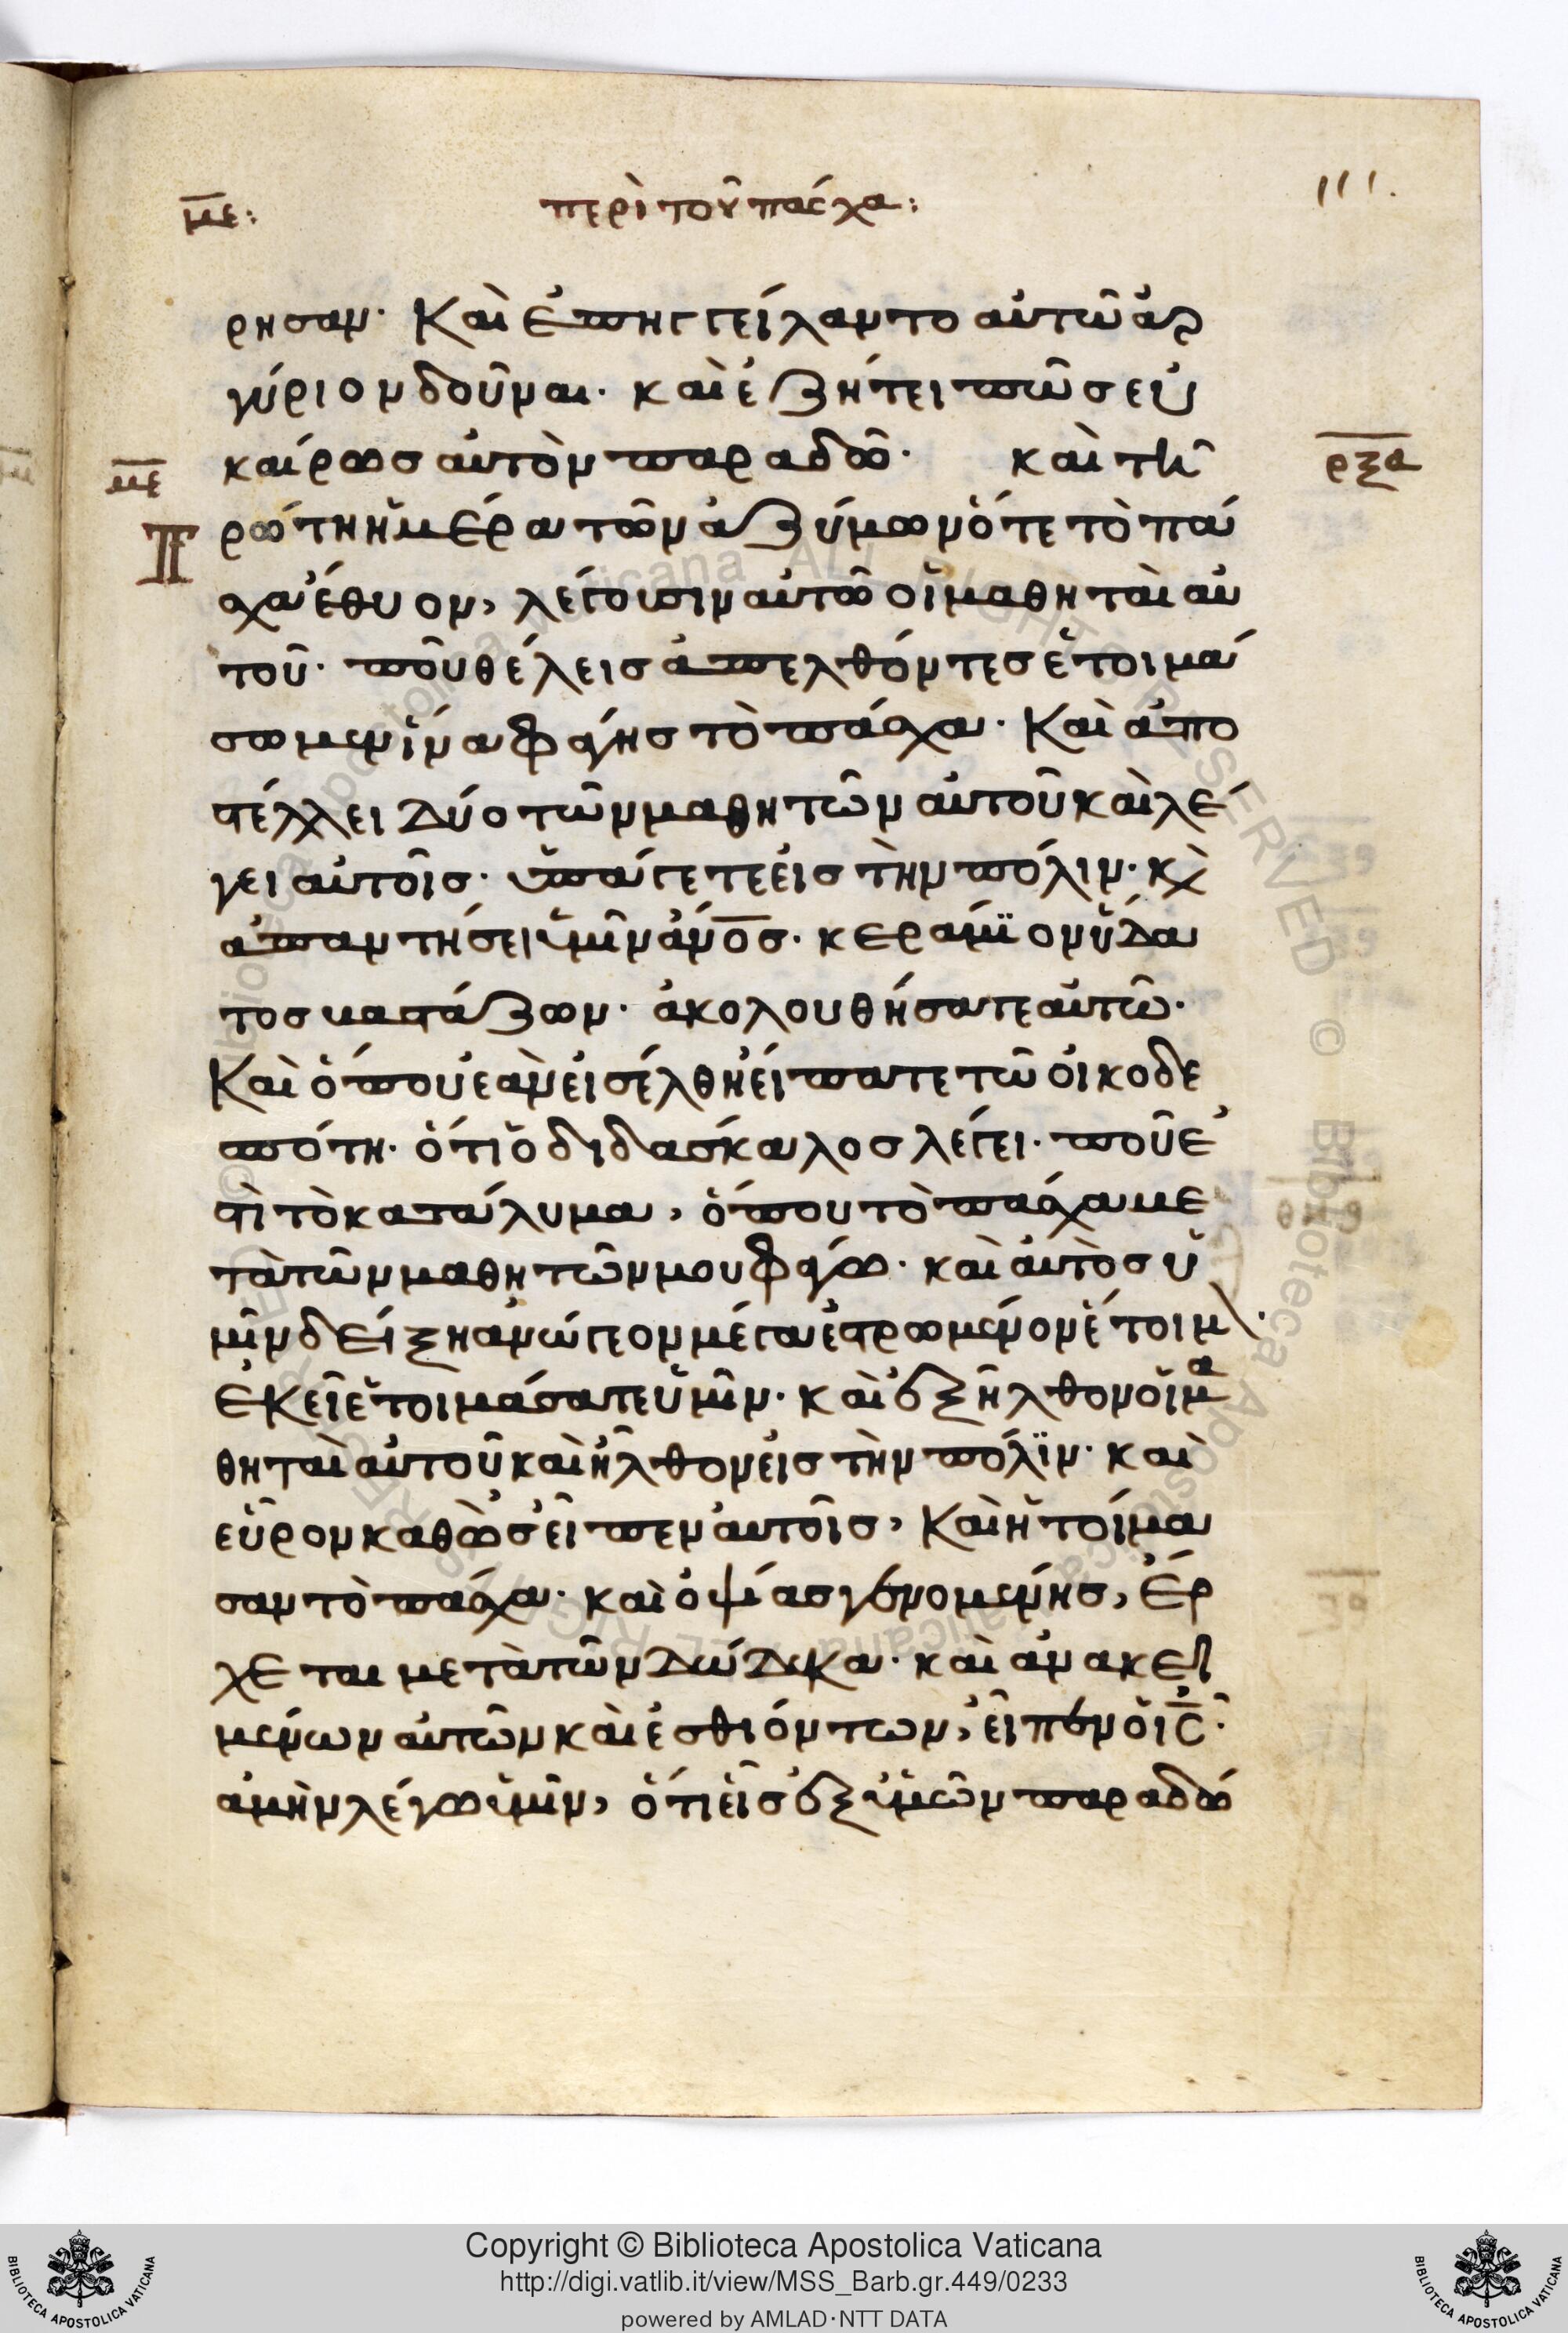 111.
με: περὶ τοῦ πάσχα:
ρησαν· Καὶ ἐπηγγείλαντο αὐτῶ ἀρ
γύριον δοῦναι· καὶ ἐζήτει πῶσ εὐ
με καίρωσ αὐτὸν παραδῶ· καὶ τῆ ρξα
Πρώτη ἡμέρα τῶν ἀζύμων ὅτε τὸ πά
σχα ἔθυον, λέγουσιν αὐτῶ οἱ μαθηταὶ αὐ
τοῦ· ποῦ θέλεισ ἀπελθόντεσ ἑτοιμά
σωμεν ἵνα φάγησ τὸ πάσχα· Καὶ ἀπο
στέλλει δύο τῶν μαθητῶν αὐτοῦ καὶ λέ
γει αὐτοῖσ· ὑπάγετε εἰσ τὴν πόλιν· κὶ
ἀπαντήσει ὑμῖν ἄνοσ· κεράμϊον ὕδα
τοσ βαστάζων· ἀκολουθήσατε αὐτῶ·
Καὶ ὅπου ἐὰν εἰσέλθη εἴπατε τῶ οἰκοδε
σπότη· ὅτι ὁ διδάσκαλοσ λέγει· ποῦ ἐ
στὶ τὸ κατάλυμα, ὅπου τὸ πάσχα με
τὰ τῶν μαθητῶν μου φάγω· καὶ αὐτὸσ ὑ
μῖν δείξη ἀνώγεον μέγα ἐστρωμένον ἕτοιμ·
ἐκεῖ ἑτοιμάσατε ὑμῖν· καὶ ἐξῆλθον οἱ μα
θηταὶ αὐτοῦ καὶ ἦλθον εἰσ τὴν πόλϊν· καὶ
εὗρον καθὼσ εἶπεν αὐτοῖσ, Καὶ ἡτοίμα
σαν τὸ πάσχα· καὶ ὀψίασ γενομένησ, ἔρ
χεται μετὰ τῶν δώδεκα· καὶ ἀνακει
μένων αὐτῶν καὶ ἐσθιόντων, εἶπεν ὁ ισ·
ἀμὴν λέγω ὑμῖν, ὅτι εἷσ ἐξ ὑμῶν παραδώ
Copyright © Biblioteca Apostolica Vaticana
http://digi.vatlib.it/view/MSS_Barb.gr.449/0233
powered by AMLAD·NTT DATA
BIBLIOTECA APOSTOLICA VATICANA
BIBLIOTECA APOSTOLICA VATICANA